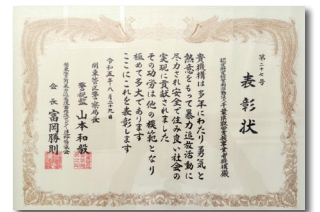 第二十七号
表彰状
貴機構は多年にわたり勇気と
熱意をもって暴力追放活動に
尽力され安全で住み良い社会の
実現に貢献されました
その功労は他の模範となり
極めて多大であります
ここにこれを表彰します
令和五年八月二十九日
関東管区警察局長
警視監 山本和毅
会長 富岡勝則